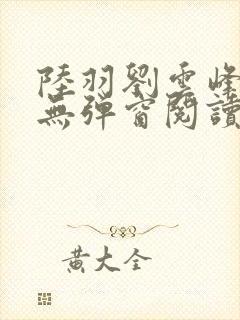 陸羽劉雲峰
無彈窗閱讀
黃大全